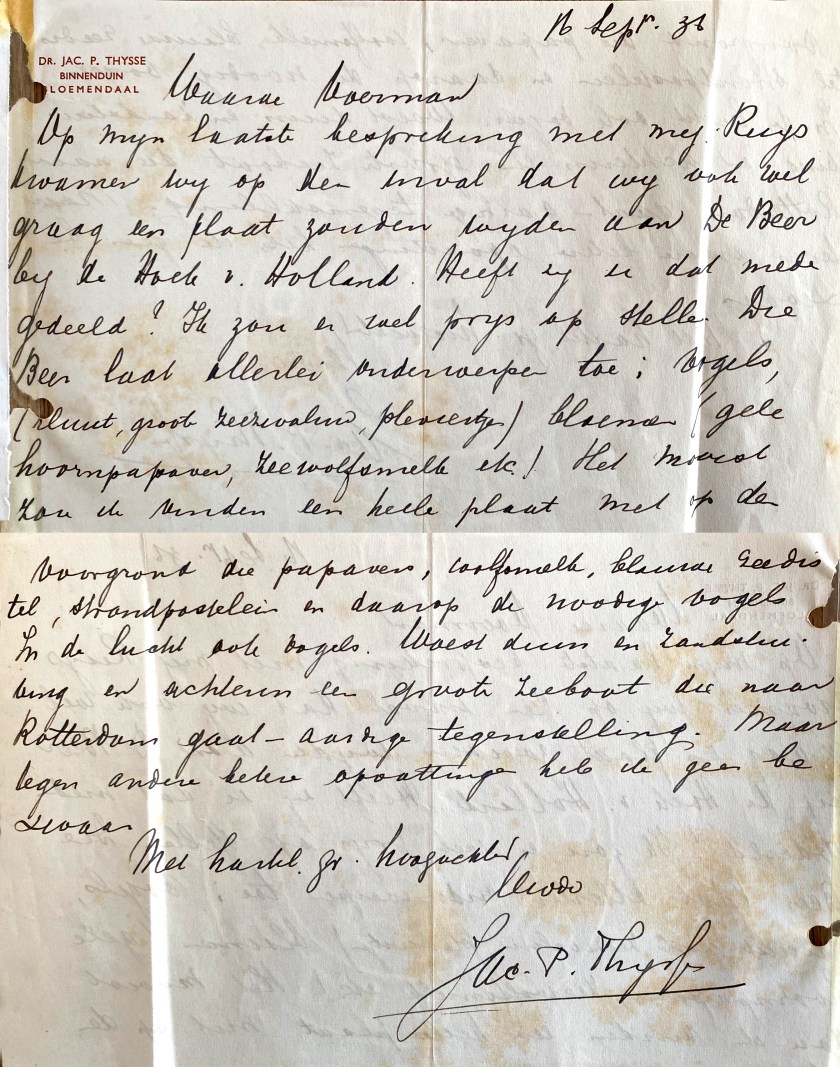 16 Sept. 36
DR. JAC. P. THYSSE
BINNENDUIN
BLOEMENDAAL
Waarde Voerman
Op mijn laatste bespreking met mej. Ruys
kwamen wij op den inval dat wij ook wel
graag een plaat zouden wijden aan De Beer
bij de Hoek v. Holland. Heeft zij u dat mede
gedeeld? Ik zou er wel prijs op stellen. Die
Beer laat allerlei onderwerpen toe; vogels,
(kluut, groote zeezwaluw, pleviertjes) bloemen (gele
hoornpapaver, zeewolfsmelk etc.) Het mooist
zou ik vinden een heele plaat met op den
voorgrond die papavers, wolfsmelk, blauwe zeedis
tel, strandpostelein en daarop de noodige vogels
In de lucht ook vogels. Woest duin en zandstui-
ving en achteraan een groote zeeboot die naar
Rotterdam gaat - aardige tegenstelling. Maar
tegen andere betere opvattingen heb ik geen be
zwaar
Met hartel. gr. hoogachtend
Uwdv
Jac. P. Thysse